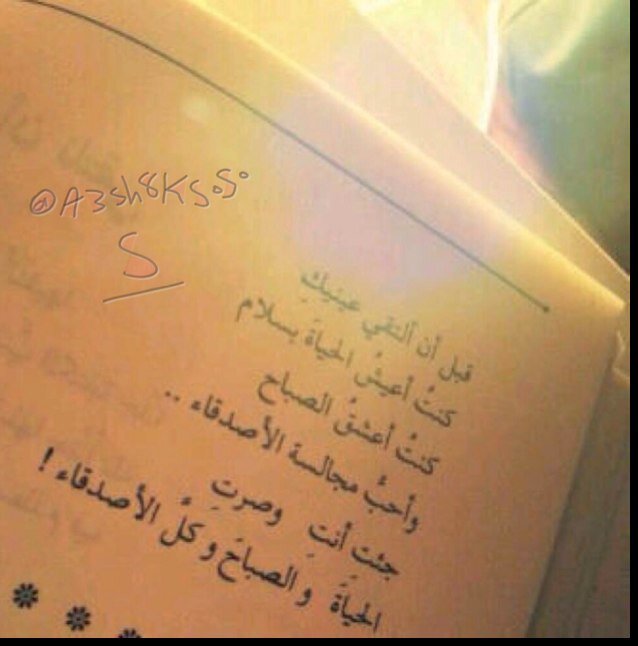 @A3sh8KS.S.
S
قبل أن ألتقي عينيكِ
كنتُ أعيشُ الحياةَ بسلام
كنتُ أعشقُ الصباح
وأحبُّ مجالسة الأصدقاء ..
جئتِ أنتِ وصرتِ
الحياةَ والصباحَ وكلَّ الأصدقاء !